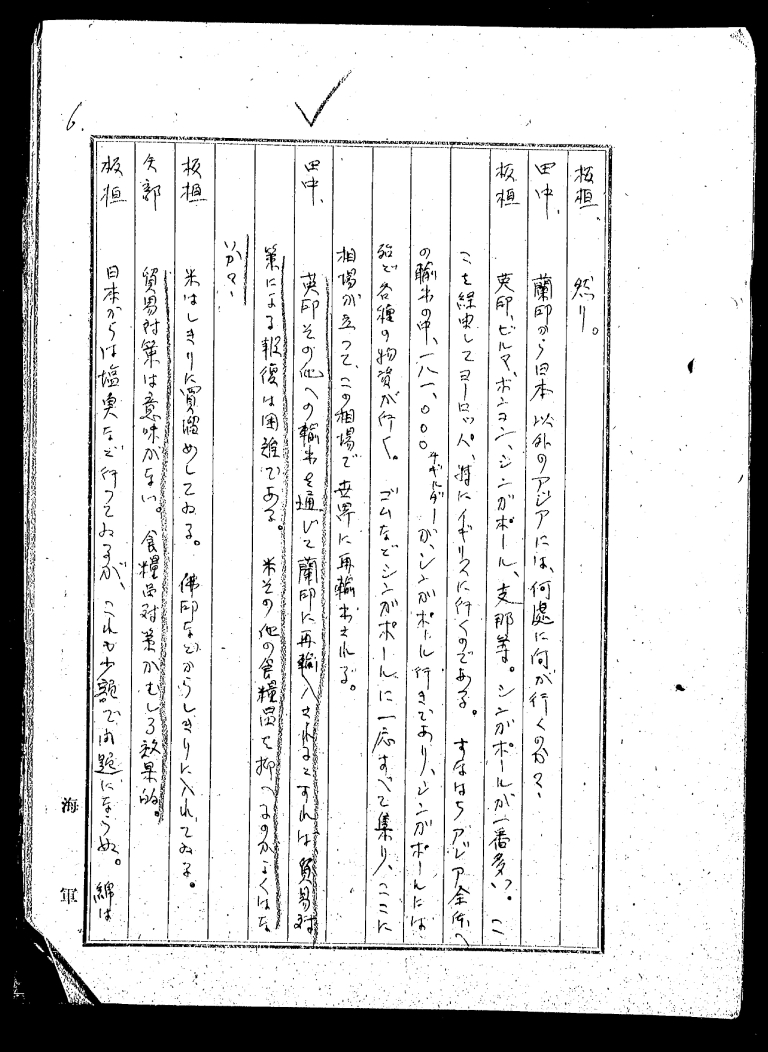 6.
板垣、 然り。
田中、 蘭印から日本以外のアジアには、何處に何が行くのか?
板垣 英印、ビルマ、ホンコン、シンガポール、支那等。シンガポールが一番多い。こ
こを経由してヨーロッパ、特にイギリスに行くのである。すなはちアジア全体へ
の輸出の中、一八一、〇〇〇千ギルダーが、シンガポール行きであり、シンガポールには
殆ど各種の物資が行く。ゴムなどシンガポールに一応すべて集り、ここに
相場が立つて、この相場で世界に再輸出される。
田中、 英印その他への輸出を通じて蘭印に再輸入されるとすれば貿易対
策による報復は困難である。米その他の食糧品を抑へるのがよくはな
いか?
板垣 米はしきりに買溜めしてゐる。佛印などからしきりに入れてゐる。
矢部 貿易対策は意味がない。食糧品対策がむしろ效果的。
板垣 日本からは塩魚など行つてゐるが、これも少額で問題にならぬ。綿は
海軍